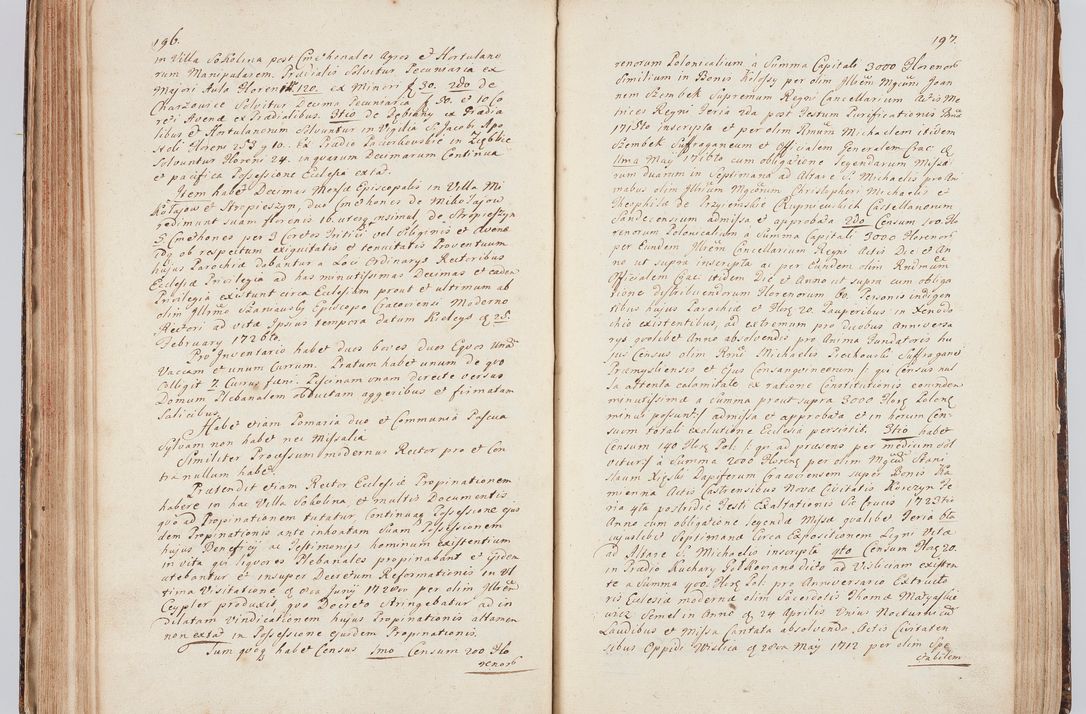 196.
in Villa Sokolina post Cmethonales Agros et Hortulano
rum Manipularem. Prædialis Solvitur Pecuniaria ex
Majori Aula Florenis 120. ex Minori f 30. 2do de
Charzowice Solvitur Decima Pecuniaria f 50. et 10 Co
reti Avenæ ex Prædialibus. 3tio de ex Prædia
libus et Hortulanorum Solvuntur in Vigilia S. Jacobi Apo
stoli Floreni 253 g 10. Ex Prædio
Solvuntur Floreni 24. in quarum Decimarum Continua
et pacifica Possessione Ecclesia extat.
Item habet Decimas Mensæ Episcopalis in Villa Mi
kołajow et Stropieszyn, duo Cmethones de Mikołajow
redimunt suam florenis 16. uterq insimul, de Stropieszyn
5. Cmethones per 3 Coretos Tritici vel Siliginis et Avenæ
idq ob respectum exiguitatis et tenuitatis Proventuum
hujus Parochiæ dabantur a Loci Ordinarijs Rectoribus
Ecclesiæ Privilegia ad has minutissimas Decimas et eadem
Privilegia existunt circa Ecclesiam prout et ultimum ab
olim Illrmo Szaniawski Episcopo Cracoviensi Moderno
Rectori ad vitæ Ipsius tempora datum Kielcijs d 25.
February 1726to.
Pro Inventario habet duos boves duos Equos Unam
Vaccam et unum Currum. Pratum habet unum de quo
Colligit 7. Currus fæni. Piscinam unam directe versus
Domum Plebanalem obductam aggeribus et firmatam
Salicibus.
Habet etiam Pomaria duo et Communia Pascua
Sylvam non habet nec Missalia.
Similiter Processum modernus Rector pro et Con
tra nullum habet.
Prætendit etiam Rector Ecclesiæ Propinationem
habere in hac Villa Sokolina et multis Documentis
quo ad Propinationem tutatur, Continuaq Possessione ejus
dem Propinationis ante inhoatam Suam Possessionem
hujus Beneficij ac Testimonijs hominum existentium
in vita qui liquores Plebanales propinabant et Eidem
utebantur et insuper Decretum Reformationis in Ul
tima Visitatione d 8va Junij 1728vo per olim Illrem
Ceypler produxit, quo Decreto Stringebatur ad in
dilatam Vindicationem hujus Propinationis attamen
non extat in Possessione ejusdem Propinationis.
Tum quoq habet Census 1mo Censum 200 Flo
renorũ
197.
renorum Polonicalium à Summa Capitali 3000 Florenorũ
Similium in Bonis Kiłossy per olim Illrem Mgcum Joan
nem Szembek Supremum Regni Cancellarium Actis Me
trices Regni Feria 2da post Festum Purificationis Bmæ
1715to inscripta et per olim Rmum Michaelem itidem
Szembek Suffraganeum et Officialem Generalem Crac d
11ma May 1716to cum obligatione Legendarum Missa
rum duarum in Septimana ad Altare S. Michaelis pro Ani
mabus olim Illrium Mgcorum Christophori Michaelis et
Theophila de Przyiemskie Rupniewskich Castellanorum
Sandecensium admissa et approbata 2do Censum 100 Flo
renorum Polonicalium à Summa Capitali 3000 Florenorũ
per Eundem Illrem Cancellarium Regni Actis Die et An
no ut supra inscripta ac per Eundem olim Rndmum
Officialem Crac itidem Die et Anno ut supra cum obliga
tione distribuendorum Florenorum 60. Personis indigen
tibus hujus Parochiæ et Flor 20. Pauperibus in Xenodo
chio existentibus, ad extremum pro Duobus Anniversa
rijs quolibet Anno absolvendis pro Anima Fundatoris hu
jus Census olim Rmi Michaelis Piechowski Suffraganei
Præmysliensis et Ejus Consangvineorum /: qui Census nu
sa attenta calamitate ex ratione Constitutionis eundem
minutissimæ a Summa prout supra 3000 Flor Polonic
minus possunt :/ admissa et approbata et in horum Cen
suum totali exolutione Ecclesia persistit. 3tio habet
Censum 140 Flor Pol. /: qui ad præsens per medium Sol
vitur :/ à Summa 2000 Floren per olim Mgcum Stani
slaum Dapiferum Cracoviensem super Bonis Ka
mienna Actis Castrensibus Novæ Civitatis Korczyn Fe
ria 4ta postridie Festi Exaltationis S. Crucis 1723tio
Anno cum obligatione Legendæ Missæ qualibet Feria 6ta
cujuslibet Septimanæ Circa Expositionem Ligni Vitæ
ad Altare S. Michaelis inscripta 4to Censum Flor 20.
in Prædio Kuchary dicto ad Visliciam existen
te a Summa 400 Flor Pol: pro Anniversario Extructo
ris Ecclesiæ modernæ olim Sacerdotis Thomæ Matyasie
wicz Semel in Anno d 24 Aprilis Unius Nocturni cum
Laudibus et Missa Cantata absolvendo Actis Civitaten
sibus Oppidi Wislica d 28va May 1712 per olim Spe
ctabilem